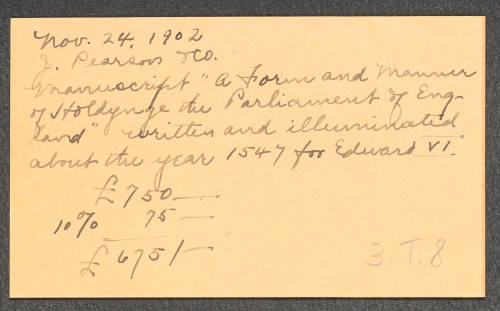 Nov. 24, 1902
J. Pearson & Co.
Manuscript "A Form and Manner
of Holdynge the Parliament of Eng-
land" written and illuminated
about the year 1547 for Edward VI.
£750—
10% 75—
£675/—
3. T. 8